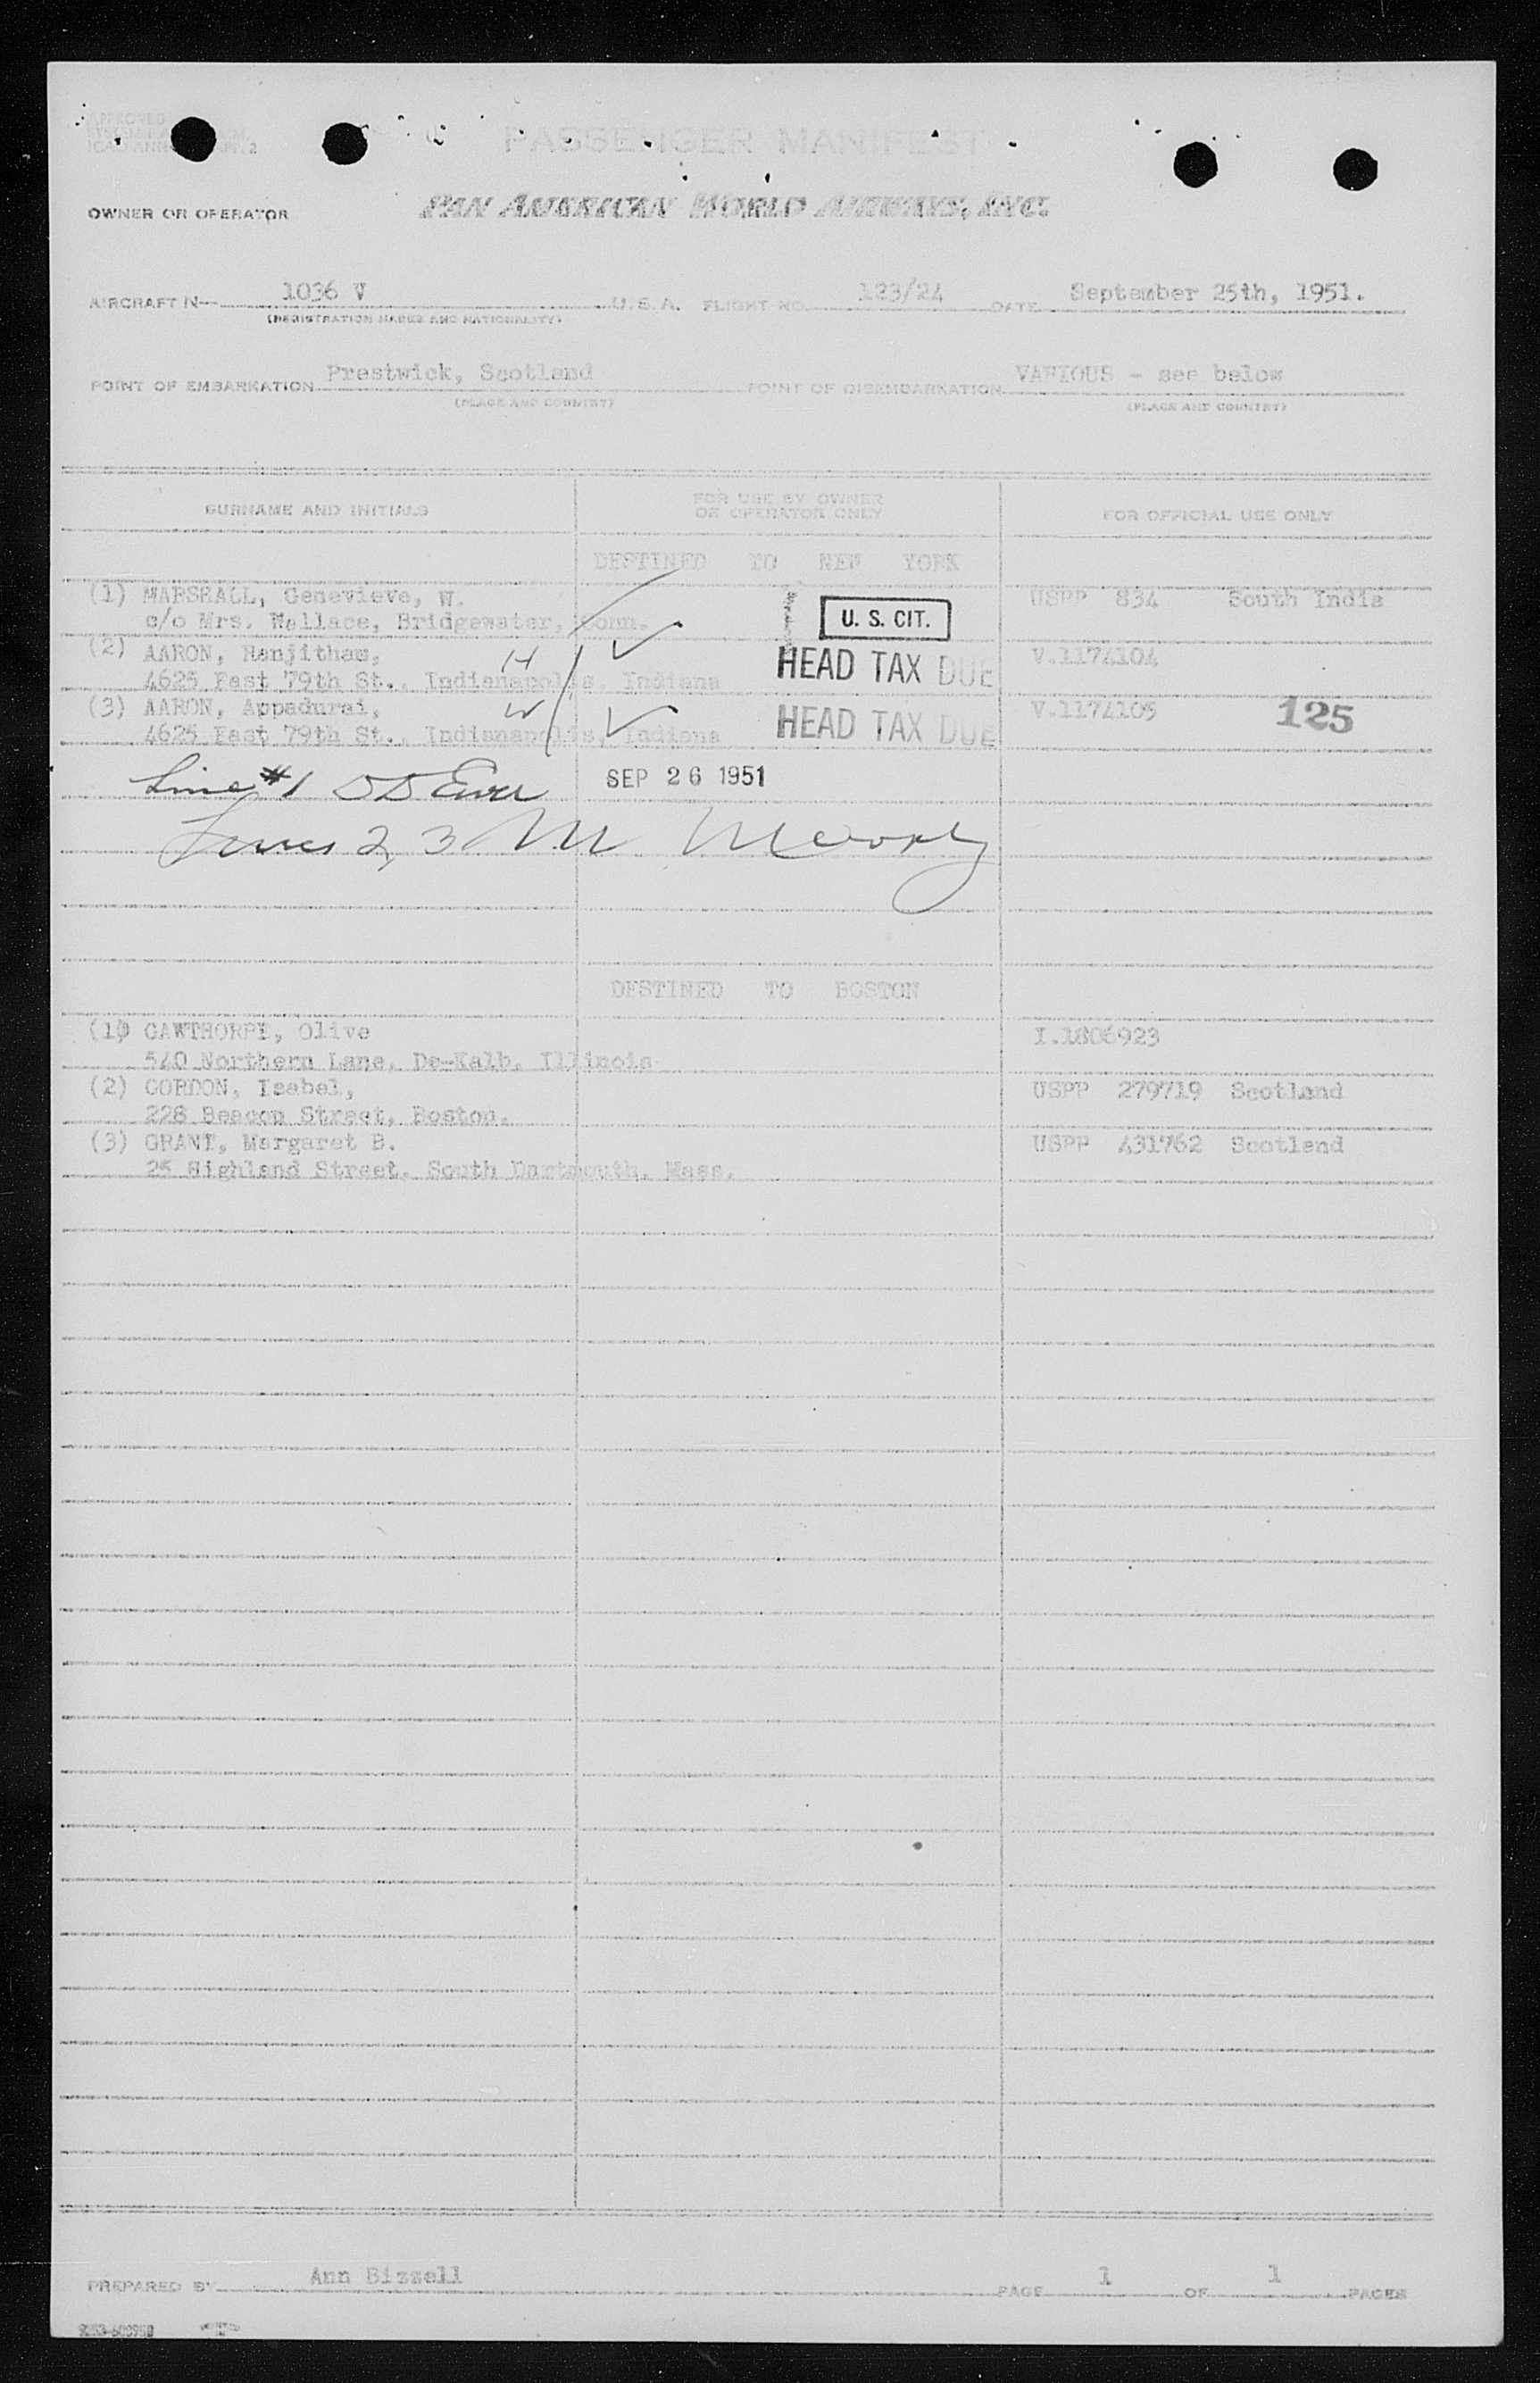 APPROVED
PASSENGER MANIFEST
OWNER OR OPERATOR PAN AMERICAN WORLD AIRWAYS, INC.
AIRCRAFT N— 1036 V U. S. A. FLIGHT NO. 123/24 DATE September 25th, 1951.
(REGISTRATION MARKS AND NATIONALITY)
POINT OF EMBARKATION Prestwick, Scotland POINT OF DISEMBARKATION VARIOUS - see below
(PLACE AND COUNTRY) (PLACE AND COUNTRY)
SURNAME AND INITIALS FOR USE BY OWNER OR OPERATOR ONLY FOR OFFICIAL USE ONLY
DESTINED TO NEW YORK
(1) MARSHALL, Genevieve, W. USPP 834 South India
c/o Mrs. Wallace, Bridgewater, Conn. U. S. CIT.
(2) AARON, Ranjitham, H HEAD TAX DUE V.1174104
4625 East 79th St., Indianapolis, Indiana
(3) AARON, Appadurai, W HEAD TAX DUE V.1174105 125
4625 East 79th St., Indianapolis, Indiana
Line #1 SEP 26 1951
Lines 2, 3
DESTINED TO BOSTON
(1) GAWTHORPE, Olive I.1806923
540 Northern Lane, De-Kalb, Illinois
(2) GORDON, Isabel, USPP 279719 Scotland
228 Beacon Street, Boston.
(3) GRANT, Margaret B. USPP 431762 Scotland
25 Highland Street, South Dartmouth, Mass.
PREPARED BY Ann Bissell PAGE 1 OF 1 PAGES